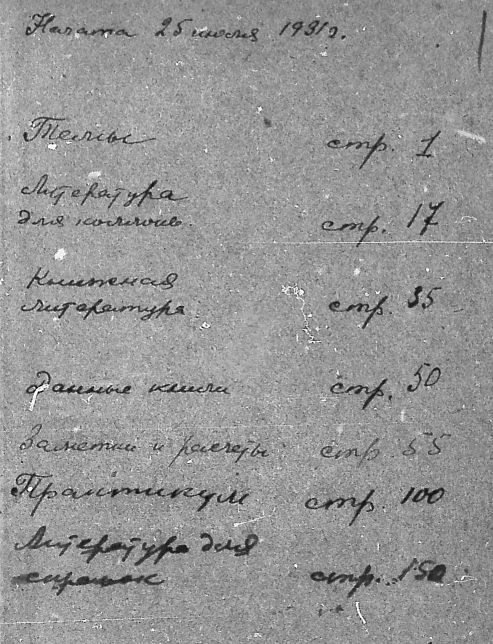 Начата 25 июля 1931г.
Темы стр. 1
Литература
для коллокв. стр. 17
Книжная
литература стр. 35
Данные книги стр. 50
Заметки и расчеты стр. 55
Практикум стр. 100
Литература для
справок стр. 150